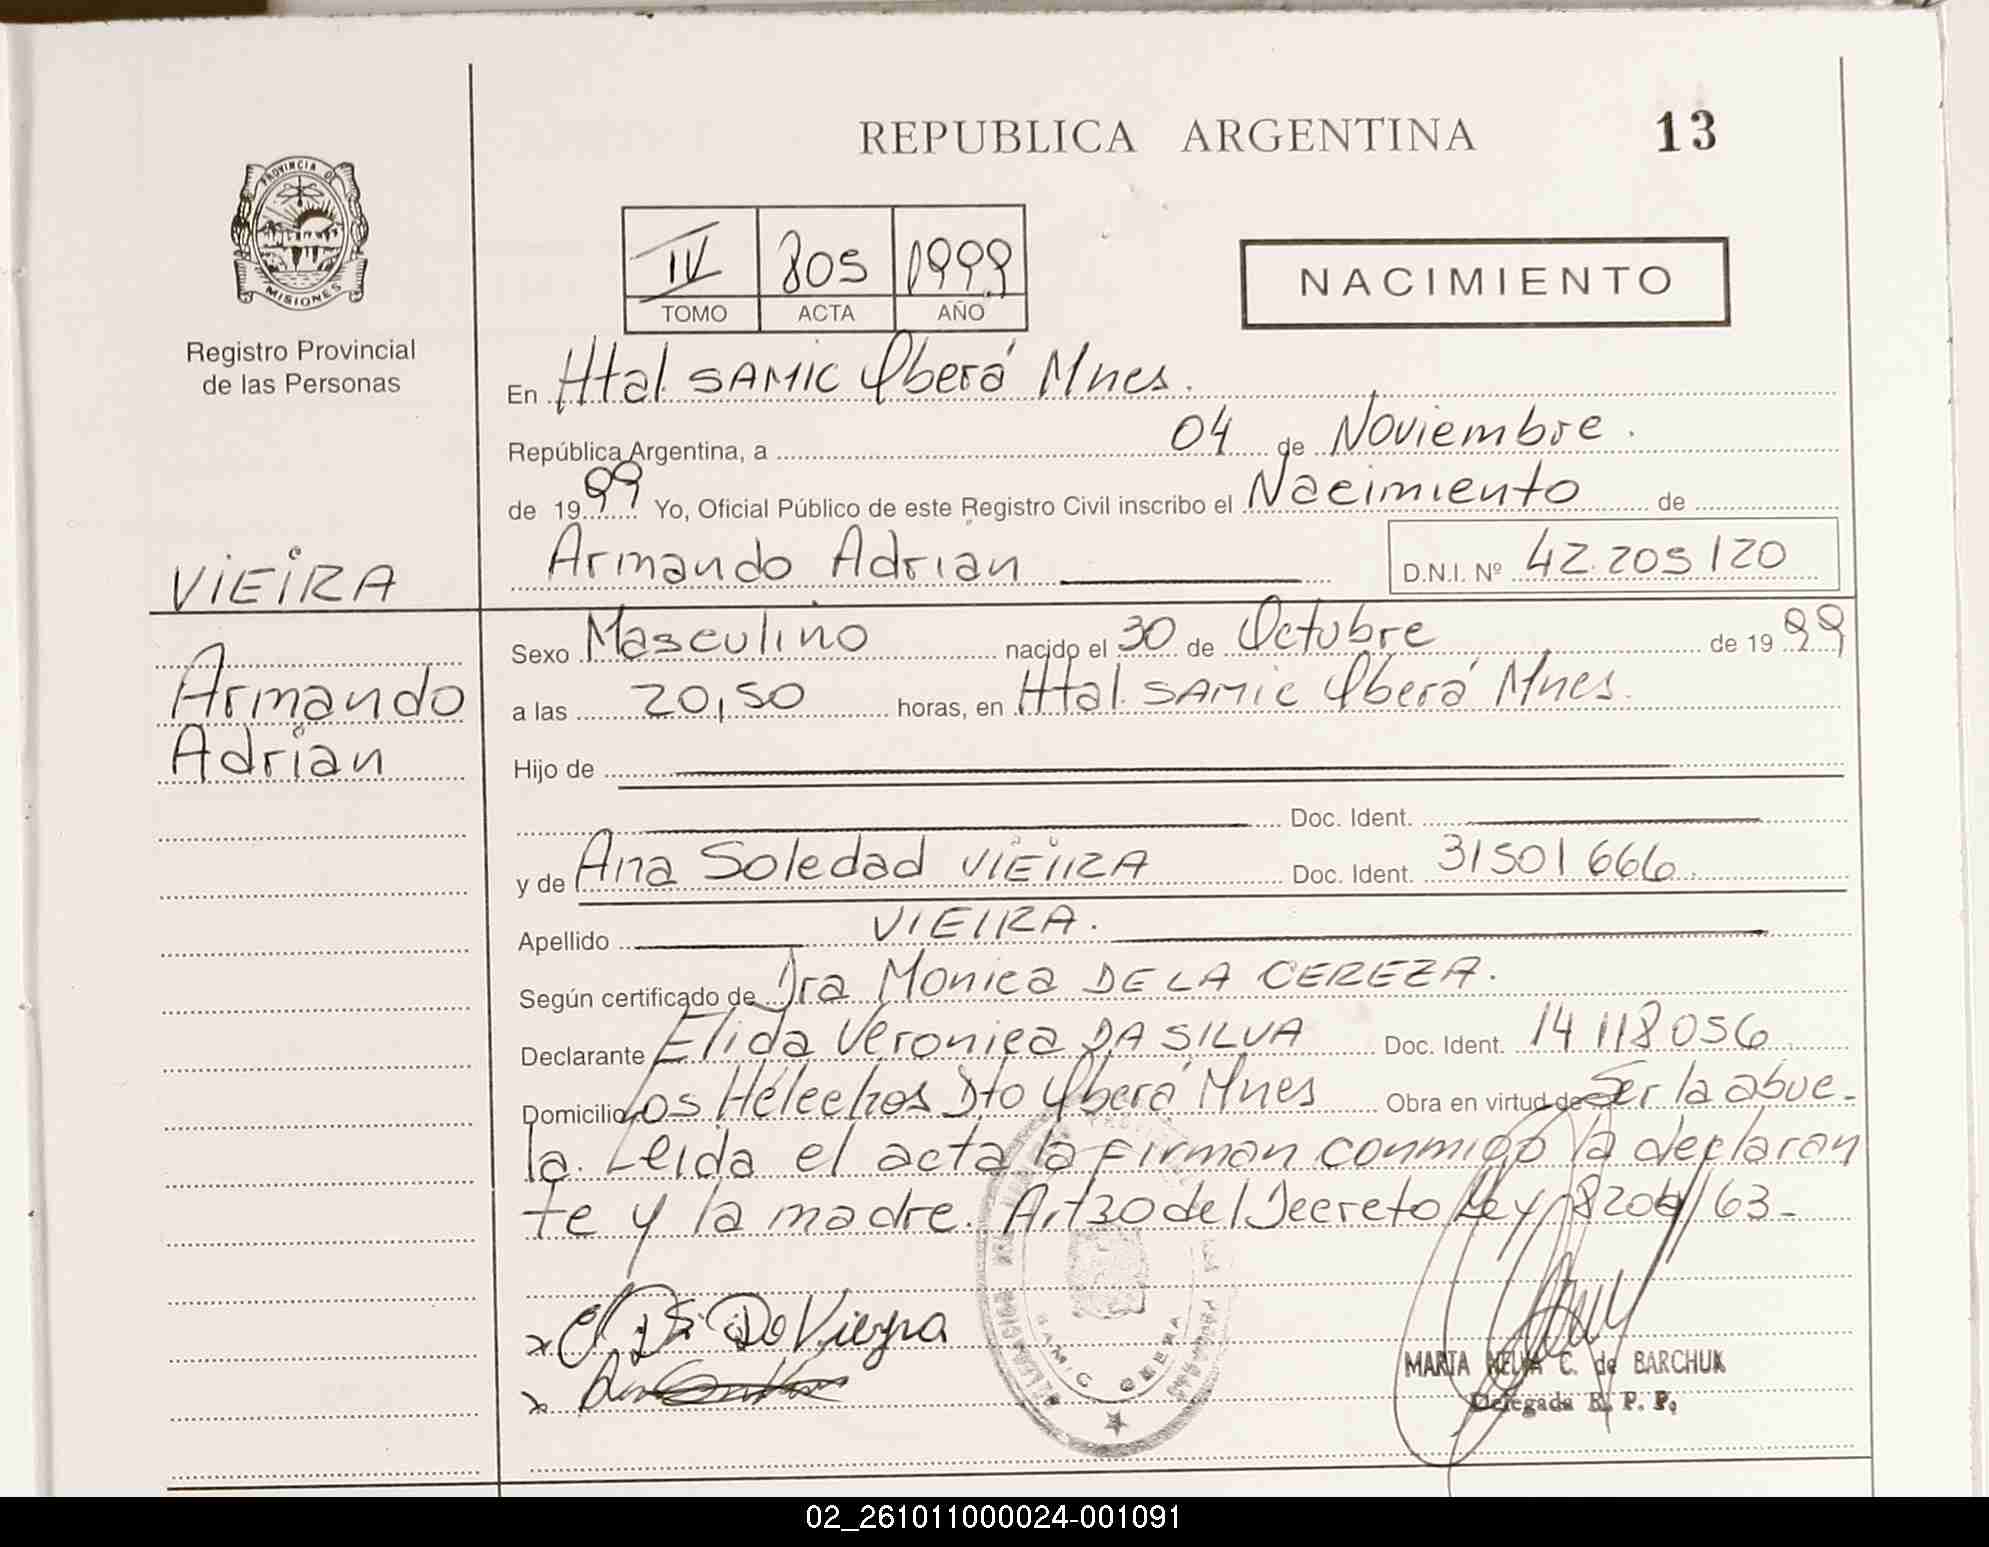 REPUBLICA ARGENTINA
13
PROVINCIA DE
MISIONES
Registro Provincial
de las Personas
IV 805 1999
TOMO ACTA AÑO
NACIMIENTO
En Htal. SAMIC Oberá Mnes.
República Argentina, a 04 de Noviembre.
de 1999 Yo, Oficial Público de este Registro Civil inscribo el Nacimiento de
Armando Adrian D.N.I. Nº 42.205120
VIEIRA
Armando
Adrian
Sexo Masculino nacido el 30 de Octubre de 1999
a las 20,50 horas, en Htal. SAMIC Oberá Mnes.
Hijo de
Doc. Ident.
y de Ana Soledad VIEIRA Doc. Ident. 31501666
Apellido VIEIRA.
Según certificado de Dra Monica DE LA CEREZA.
Declarante Elida Veronica DA SILVA Doc. Ident. 14118056
Domicilio Los Helechos Dto Oberá Mnes Obra en virtud de Ser la abue-
la. Leida el acta la firman conmigo la declaran
te y la madre. Art 30 del Decreto Ley 8204/63-
x
x
SAMIC OBERA
MARTA NELVA C. de BARCHUK
Delegada R. P. P.
02_261011000024-001091